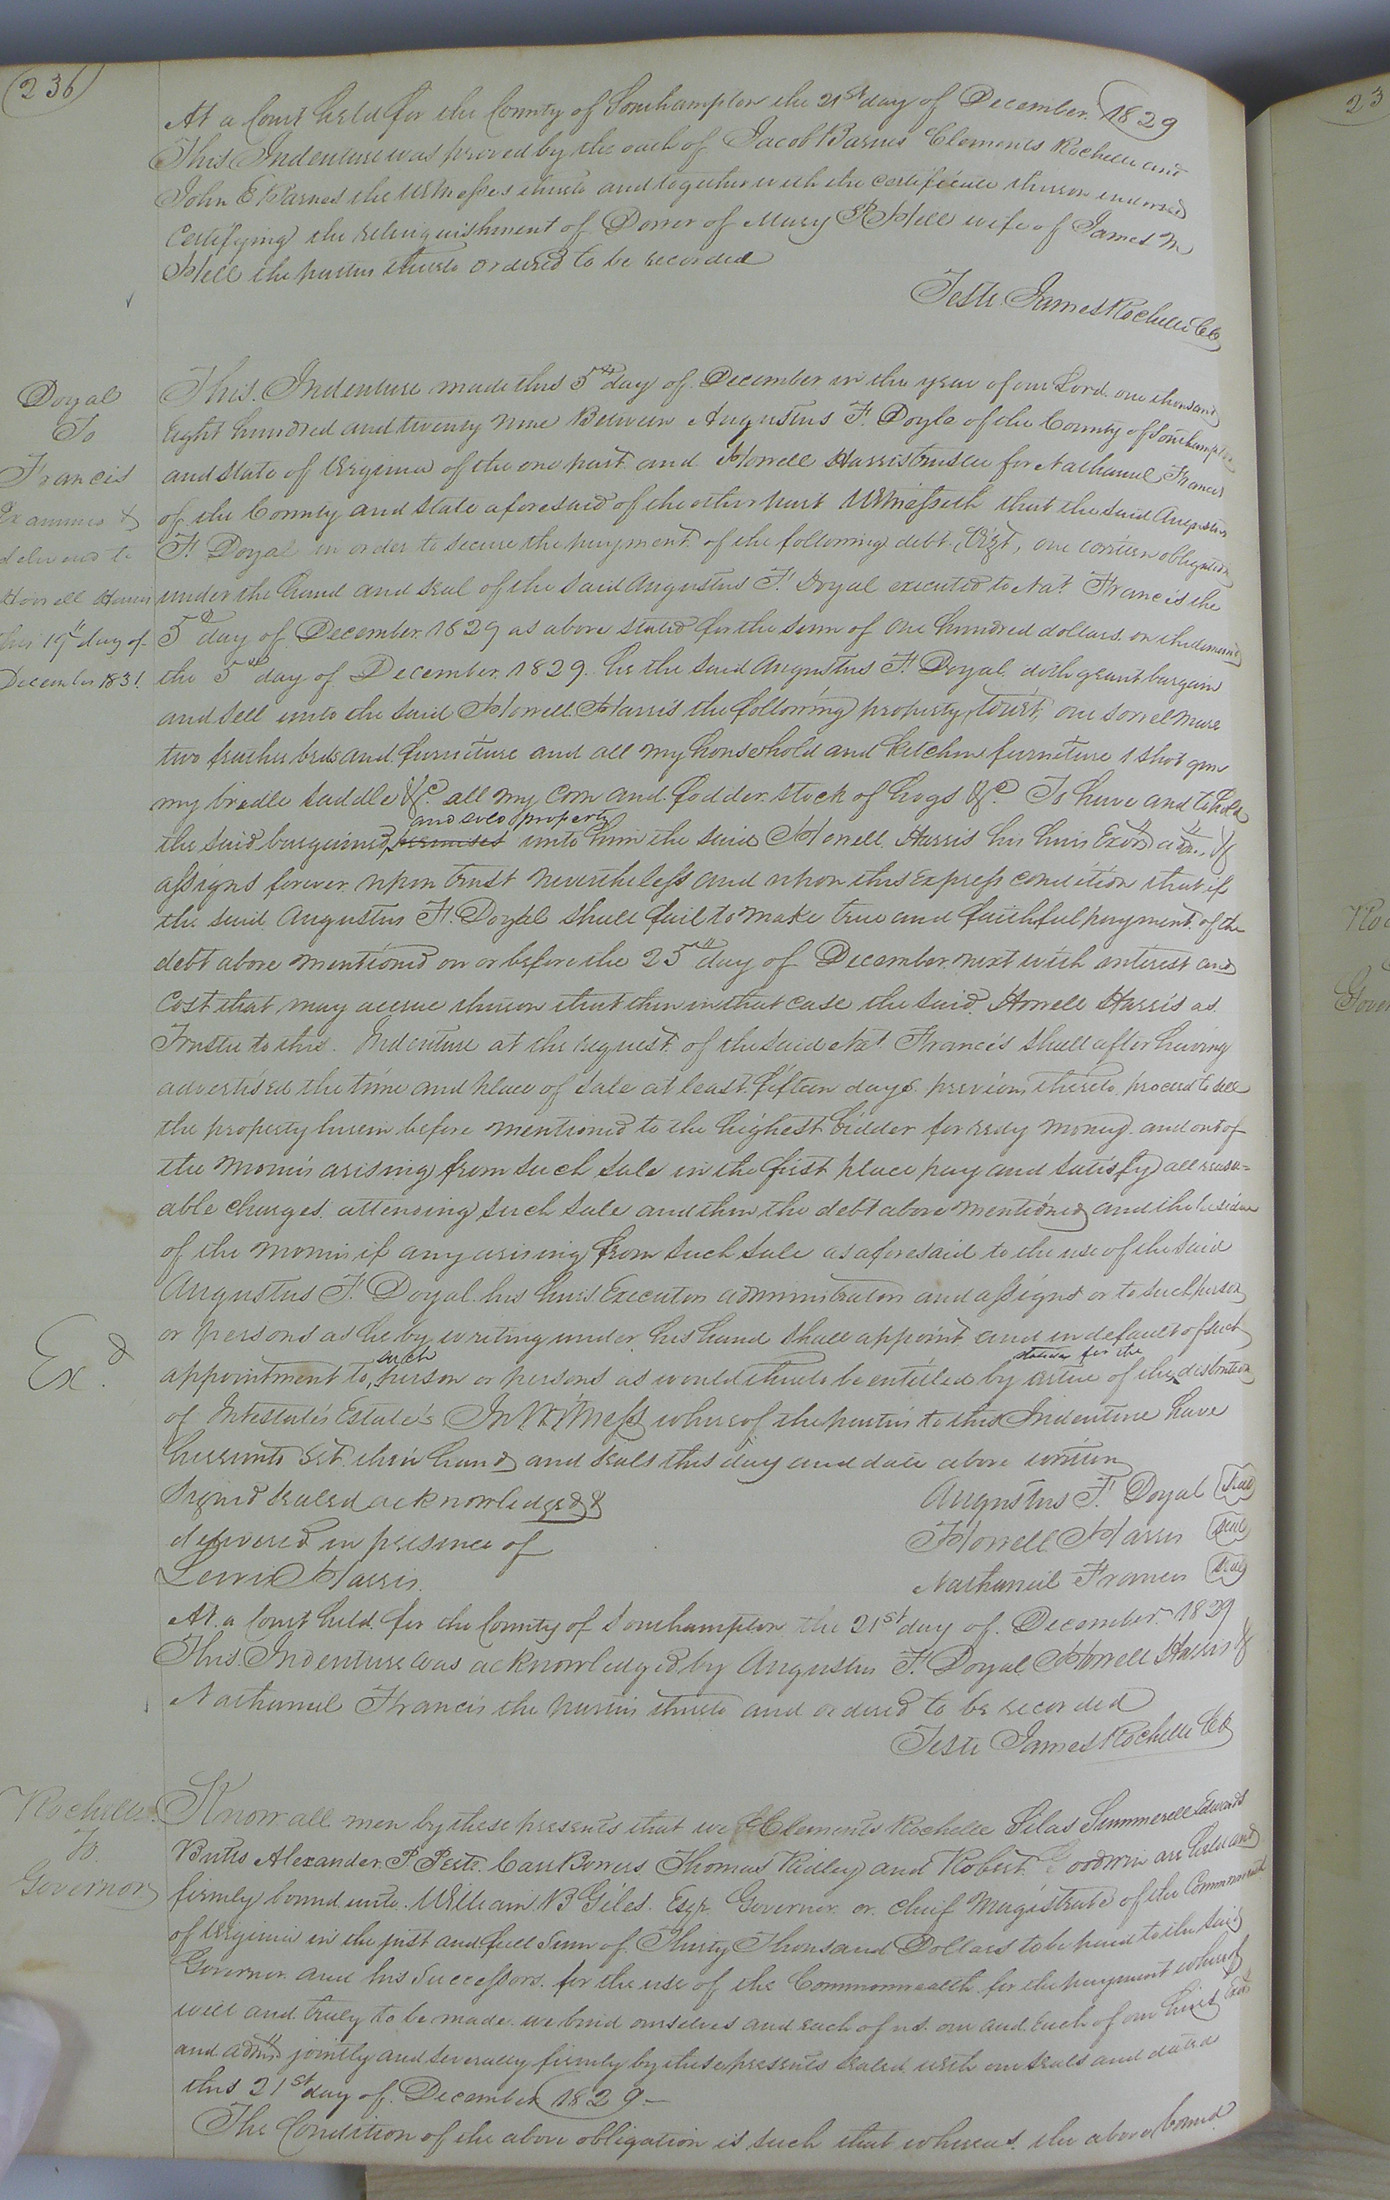 236
At a Court held for the County of Southampton the 21st day of December 1829
This Indenture was proved by the oath of Jacob Barnes Clements Rochelle and
John E Barnes the Witnesses thereto and together with the certificate thereon endorsed
Certifying the relinquishment of Dower of Mary R Hill wife of James M
Hill the parties thereto ordered to be recorded
Teste James Rochelle CC
Doyal
To
Francis
Examined &
delivered to
Howell Harris
this 19th day of
December 1831.
This Indenture made this 5th day of December in the year of our Lord one thousand
Eight hundred and twenty nine Between Augustus F. Doyle of the County of Southampton
and State of Virginia of the one part and Howell Harris trustee for Nathaniel Francis
of the County and State aforesaid of the other part Witnesseth that the said Augustus
F. Doyal in order to secure the payment of the following debt (Viz), one written obligation
under the hand and seal of the said Augustus F. Doyal executed to Nat Francis the
5th day of December 1829 as above stated for the sum of One hundred dollars on the demand
the 5th day of December 1829. he the said Augustus F. Doyal doth grant bargain
and sell unto the said Howell Harris the following property, towit, one sorrel mare
two feather beds and furniture and all my household and kitchen furniture 1 shot gun
my bridle saddle &c. all my corn and fodder stock of hogs &c. To have and to hold
the said bargained premises unto him the said Howell Harris his heirs Exors adms. &
and sold property
assigns forever upon trust nevertheless and upon this Express condition that if
the said Augustus F. Doyal shall fail to make true and faithful payment of the
debt above mentioned on or before the 25th day of December next with interest and
Cost that may accrue thereon that then in that case the said Howell Harris as
Trustee to this Indenture at the request of the said Nat Francis shall after having
advertised the time and place of sale at least fifteen days previous thereto proceed to sell
the property herein before mentioned to the highest bidder for redy money and out of
the monies arising from such sale in the first place pay and satisfy all reason=
able charges attending such sale and then the debt above mentioned and the residue
of the monies if any arising from such sale as aforesaid to the use of the said
Augustus F. Doyal his heirs Executors administrators and assigns or to such person
or persons as he by writing under his hand shall appoint and in default of such
Exd.
appointment to, such person or persons as would thereto be entitled by virtue of the statute for the distribution
of Intestate's Estate's In Witness whereof the parties to this Indenture have
hereunto set their hand and seals this day and date above written
Signed sealed acknowledged & Augustus F. Doyal Seal
delivered in presence of Howell Harris Seal
Lewis Harris. Nathaniel Francis Seal
At a Court held for the County of Southampton the 21st day of December 1829
This Indenture was acknowledged by Augustus F. Doyal Howell Harris &
Nathaniel Francis the parties thereto and ordered to be recorded
Teste James Rochelle CC
Rochelle
To
Governor
Know all men by these presents that we Clements Rochelle Silas Summerell Edwards
Butts Alexander P. Peete. Carr Bowers Thomas Ridley and Robert Goodwin are held and
firmly bound unto William B Giles Esqr. Governor or Chief Magistrate of the Commonwealth
of Virginia in the just and full Sum of Thirty Thousand Dollars to be paid to the said
Governor and his Successors for the use of the Commonwealth for the payment whereof
well and truly to be made we bind ourselves and each of us our and each of our heirs Exors
and adms jointly and severally firmly by these presents sealed with our seals and dated
this 21st day of December 1829 -
The Condition of the above obligation is such that whereas the above bound
23